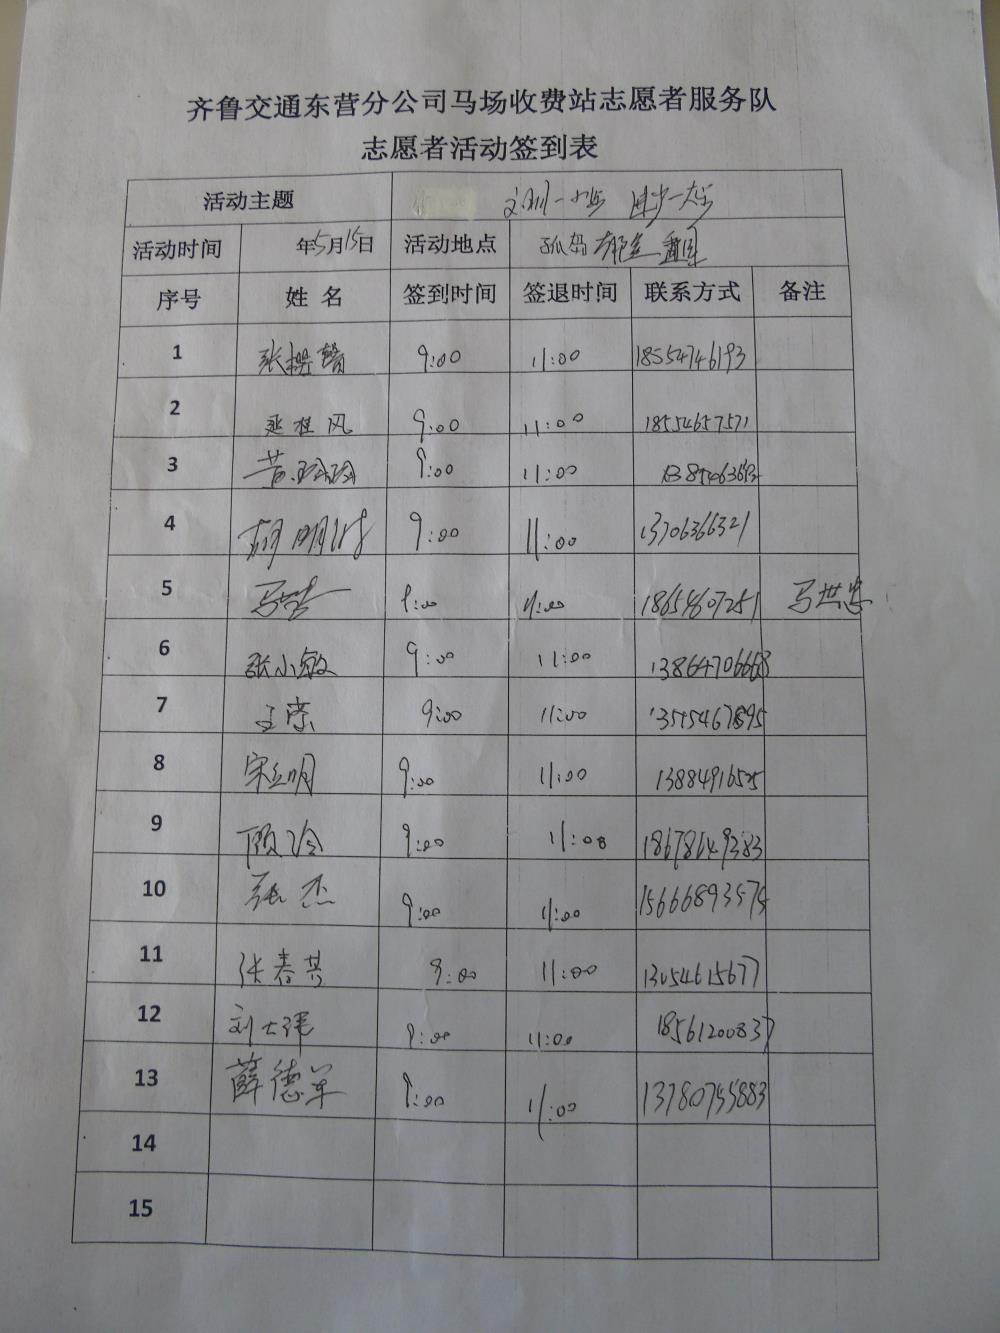 齐鲁交通东营分公司马场收费站志愿者服务队
志愿者活动签到表
活动主题
活动时间 年5月15日 活动地点 孤岛
序号 姓名 签到时间 签退时间 联系方式 备注
1 张 9:00 11:00 18554746193
2 延桂风 9:00 11:00 18554657571
3 黄 9:00 11:00
4 胡明 9:00 11:00 13706366321
5 马 9:00 11:00 18654607251 马世忠
6 张小敏 9:00 11:00 13864706668
7 王 9:00 11:00 13515467895
8 宋立明 9:00 11:00 13884916525
9 顾冷 9:00 11:00 18678649383
10 张杰 9:00 11:00 15666893574
11 张春 9:00 11:00 13054615677
12 刘大 9:00 11:00 18561200837
13 薛德军 9:00 11:00 13780755883
14
15